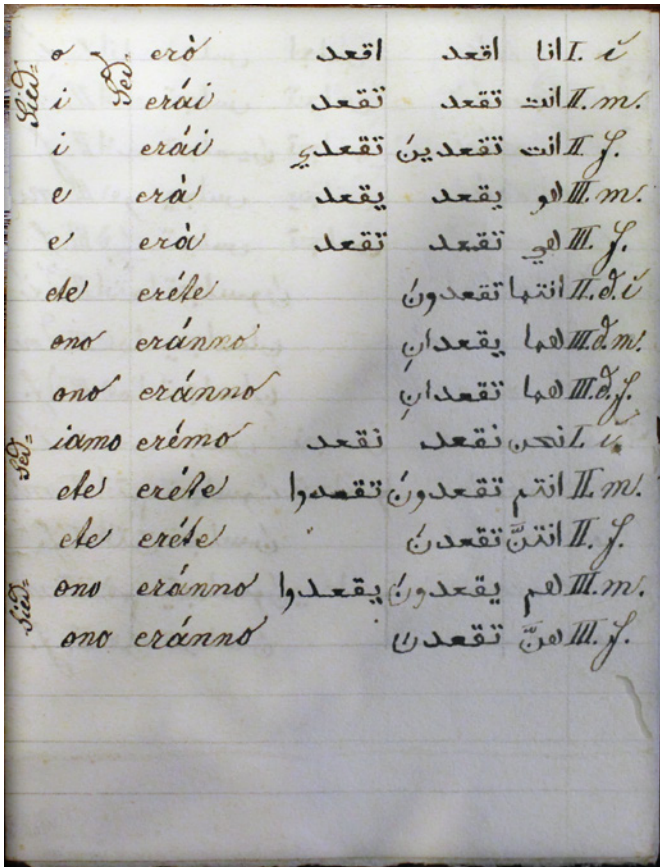 Siéd= o - Sed= erò اقعد اقعد انا I. i
i erái تقعد تقعد انت II. m.
i erái تقعدي تقعدين انت II f.
e erà يقعد يقعد هو III. m.
e erà تقعد تقعد هي III. f.
ete eréte تقعدون انتما II. d. i
ono eránno يقعدانِ هما III. d. m.
ono eránno تقعدانِ هما III. d. f.
Sed= iamo erémo نقعد نقعد نحن I. i.
ete eréte تقعدوا تقعدون انتم II. m.
ete eréte تقعدن انتنَّ II. f.
Siéd= ono eránno يقعدوا يقعدون هم III. m.
ono eránno تقعدن هنَّ III. f.